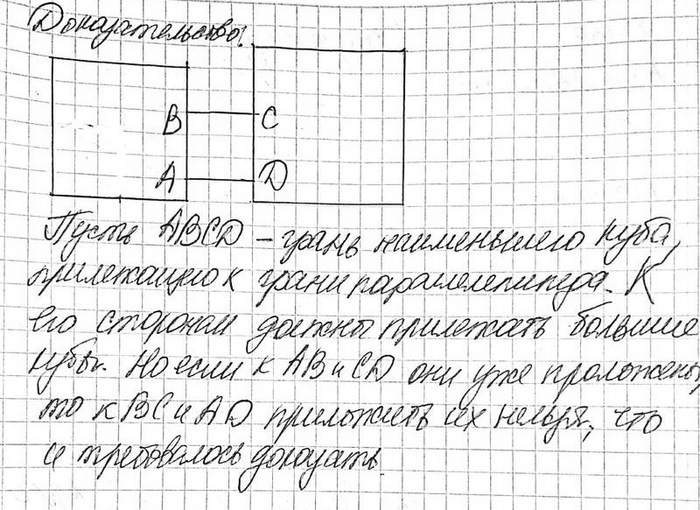 Доказательство:
B C
A D
Пусть ABCD – грань наименьшего куба,
прилежащую к грани параллелепипеда. К
его сторонам должны прилежать большие
кубы. Но если к AB и CD они уже проложены,
то к BC и AD приложить их нельзя, что
и требовалось доказать.